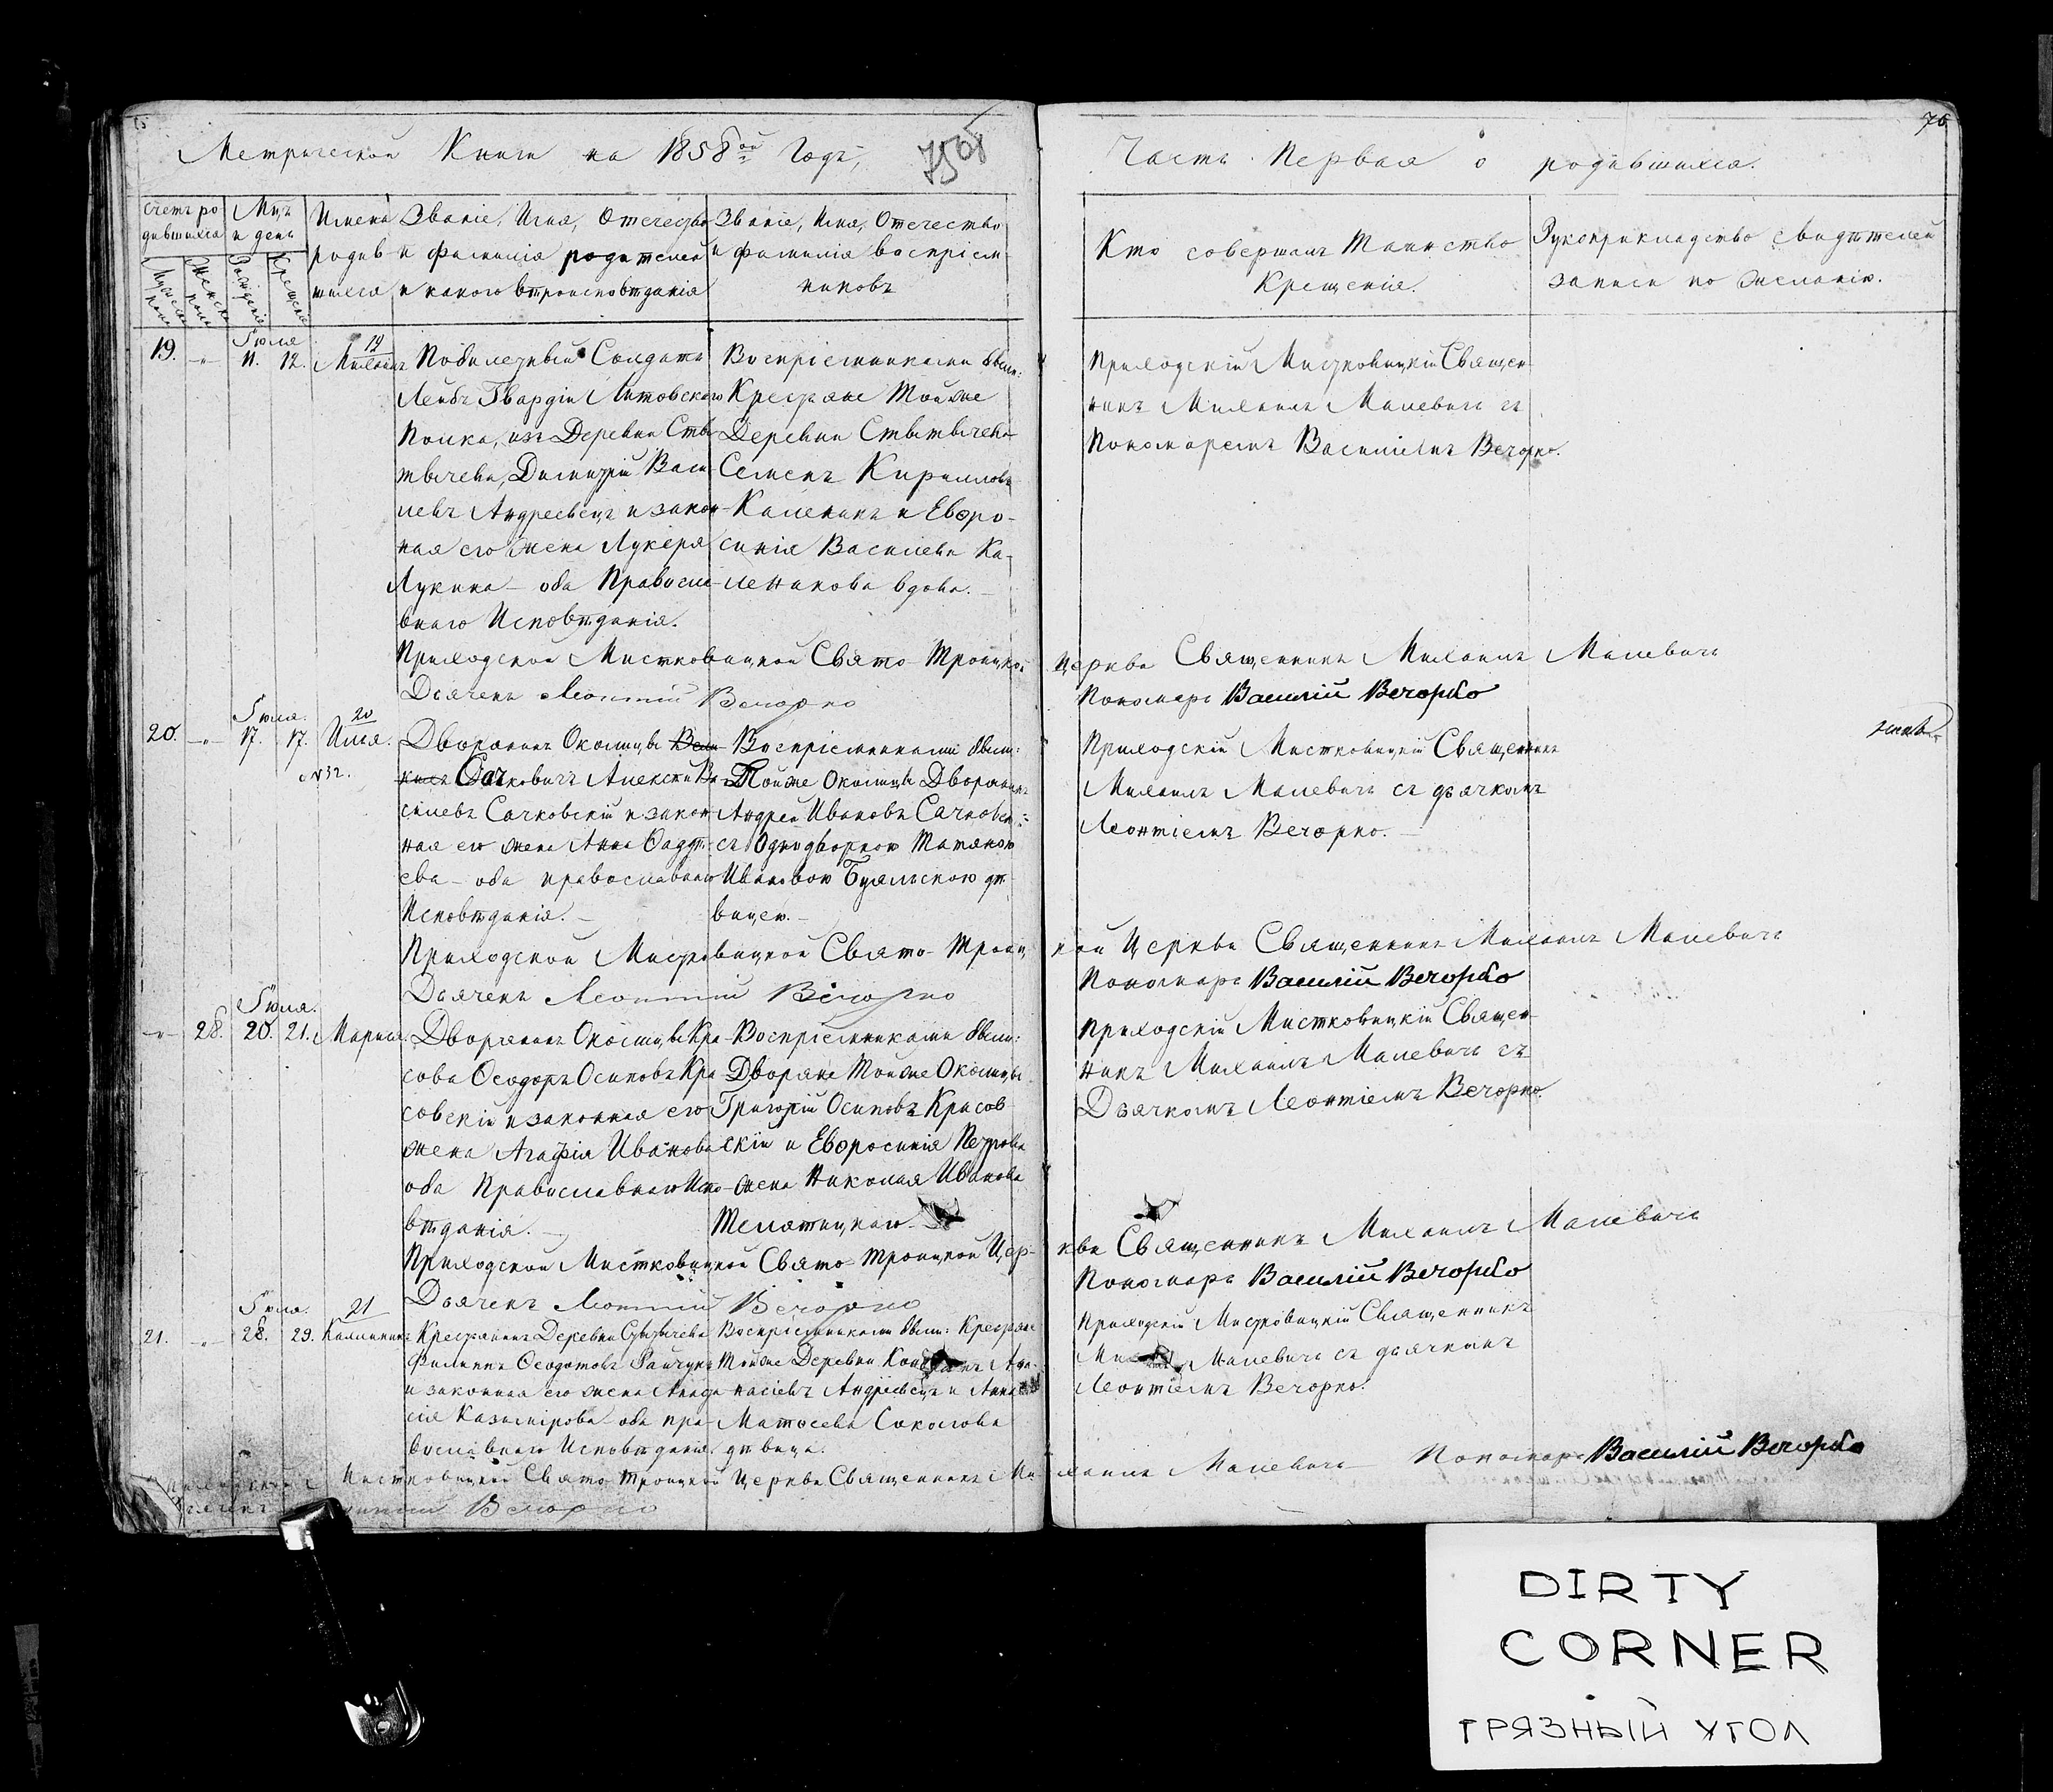 Метрической Книги на 1858ой Годъ,
Часть Первая о родившихся.
76
Счетъ ро
дившихся
Мцъ
и день
Мужеска
пола
Женска
пола
Рожденія
Крещенія
Имена
родив
шихся
Званіе, Имя, Отечество
и фамилія родителей
и какого вѣроисповѣданія
Званіе, Имя, Отечество
и фамилія воспріем-
никовъ
Кто совершалъ Таинство
Крещенія.
Рукоприкладство свидѣтелей
записи по желанію.
19. -"- Іюля 11. 12.
19
Михаилъ
Побилетный Солдатъ
Лейбъ Гвардіи Литовскаго
Полка, изъ Деревни Ствы-
тычева, Димитрій Васи-
левъ Андреевецъ и закон-
ная его жена Лукеря
Лукина - оба Правосла-
внаго Исповѣданія.
Воспріемниками были:
Крестяне Тойже
Деревни Ствытычева
Семенъ Кирилловъ
Каленикъ и Евфро-
синія Василева Ка-
леникова вдова.
Приходскій Мистковицкій Священ-
никъ Михаилъ Малевичъ съ
Пономаремъ Василіемъ Вечорко.
Приходской Мистковицкой Свято-Троицкой Церкви Священникъ Михаилъ Малевичъ
Дьячекъ Леонтій Вечорко Пономарь Василій Вечорко
20. -"- Іюля. 17. 17.
20
Илія.
Дворянинъ Околицы
Сачковичъ Алексѣй Ва-
силевъ Сачковскій и закон-
ная его жена Анна Фадѣ-
ева - оба православнаго
Исповѣданія.
Воспріемниками были:
Тойже Околицы Дворянинъ
Андрей Ивановъ Сачковскій
съ Однодворкою Татяною
Ивановою Буяльскою дѣ-
вицею.
Приходскій Мистковицкій Священникъ
Михаилъ Малевичъ съ дьячкомъ
Леонтіемъ Вечорко.
Приходской Мистковицкой Свято-Троиц кой Церкви Священникъ Михаилъ Малевичъ
Дьячекъ Леонтій Вечорко Пономарь Василій Вечорко
-"- 28. Іюля. 20. 21.
Марія.
Дворянинъ Околицы Кра-
сова Феодоръ Осиповъ Кра-
совскій и законная его
жена Агафія Иванова
оба Православнаго Испо-
вѣданія.
Воспріемниками были:
Дворяне Тойже Околицы
Григорій Осиповъ Красов-
скій и Евфросинія Петрова
жена Николая Иванова
Телятицкаго.
Приходскій Мистковицкій Священ-
никъ Михаилъ Малевичъ съ
Дьячкомъ Леонтіемъ Вечорко.
Приходской Мистковицкой Свято-Троицкой Цер-кви Священникъ Михаилъ Малевичъ
Дьячекъ Леонтій Вечорко Пономарь Василій Вечорко
21. -"- Іюля. 28. 29.
21
Каллиникъ
Крестянинъ Деревни Ствытычева
Филиппъ Феодотовъ Райчукъ
и законная его жена Анаста-
сія Казимірова оба пра-
вославнаго Исповѣданія.
Воспріемниками были: Крестяне
Тойже Деревни Афа-
насіевъ Андреевецъ и Анна
Матѳеева Соколова
дѣвица.
Приходскій Мистковицкій Священникъ
Малевичъ съ дьячкомъ
Леонтіемъ Вечорко.
Мистковицкой Свято-Троицкой Церкви Священникъ Михаилъ Малевичъ Пономарь Василій Вечорко
Вечорко
DIRTY
CORNER
ГРЯЗНЫЙ УГОЛ